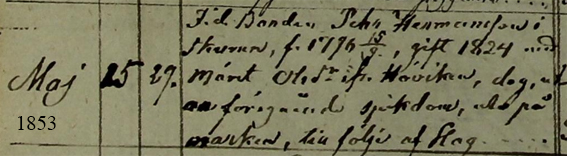 F.d. Bonden Pehr Hermansson i
Skuran, f. 1776 15/9, gift 1824 med
Maj 25 29. Märit Olsdr. ifr. Håviken, dog, utan
föregående sjukdom, ute på
marken, till följe af Slag
1853